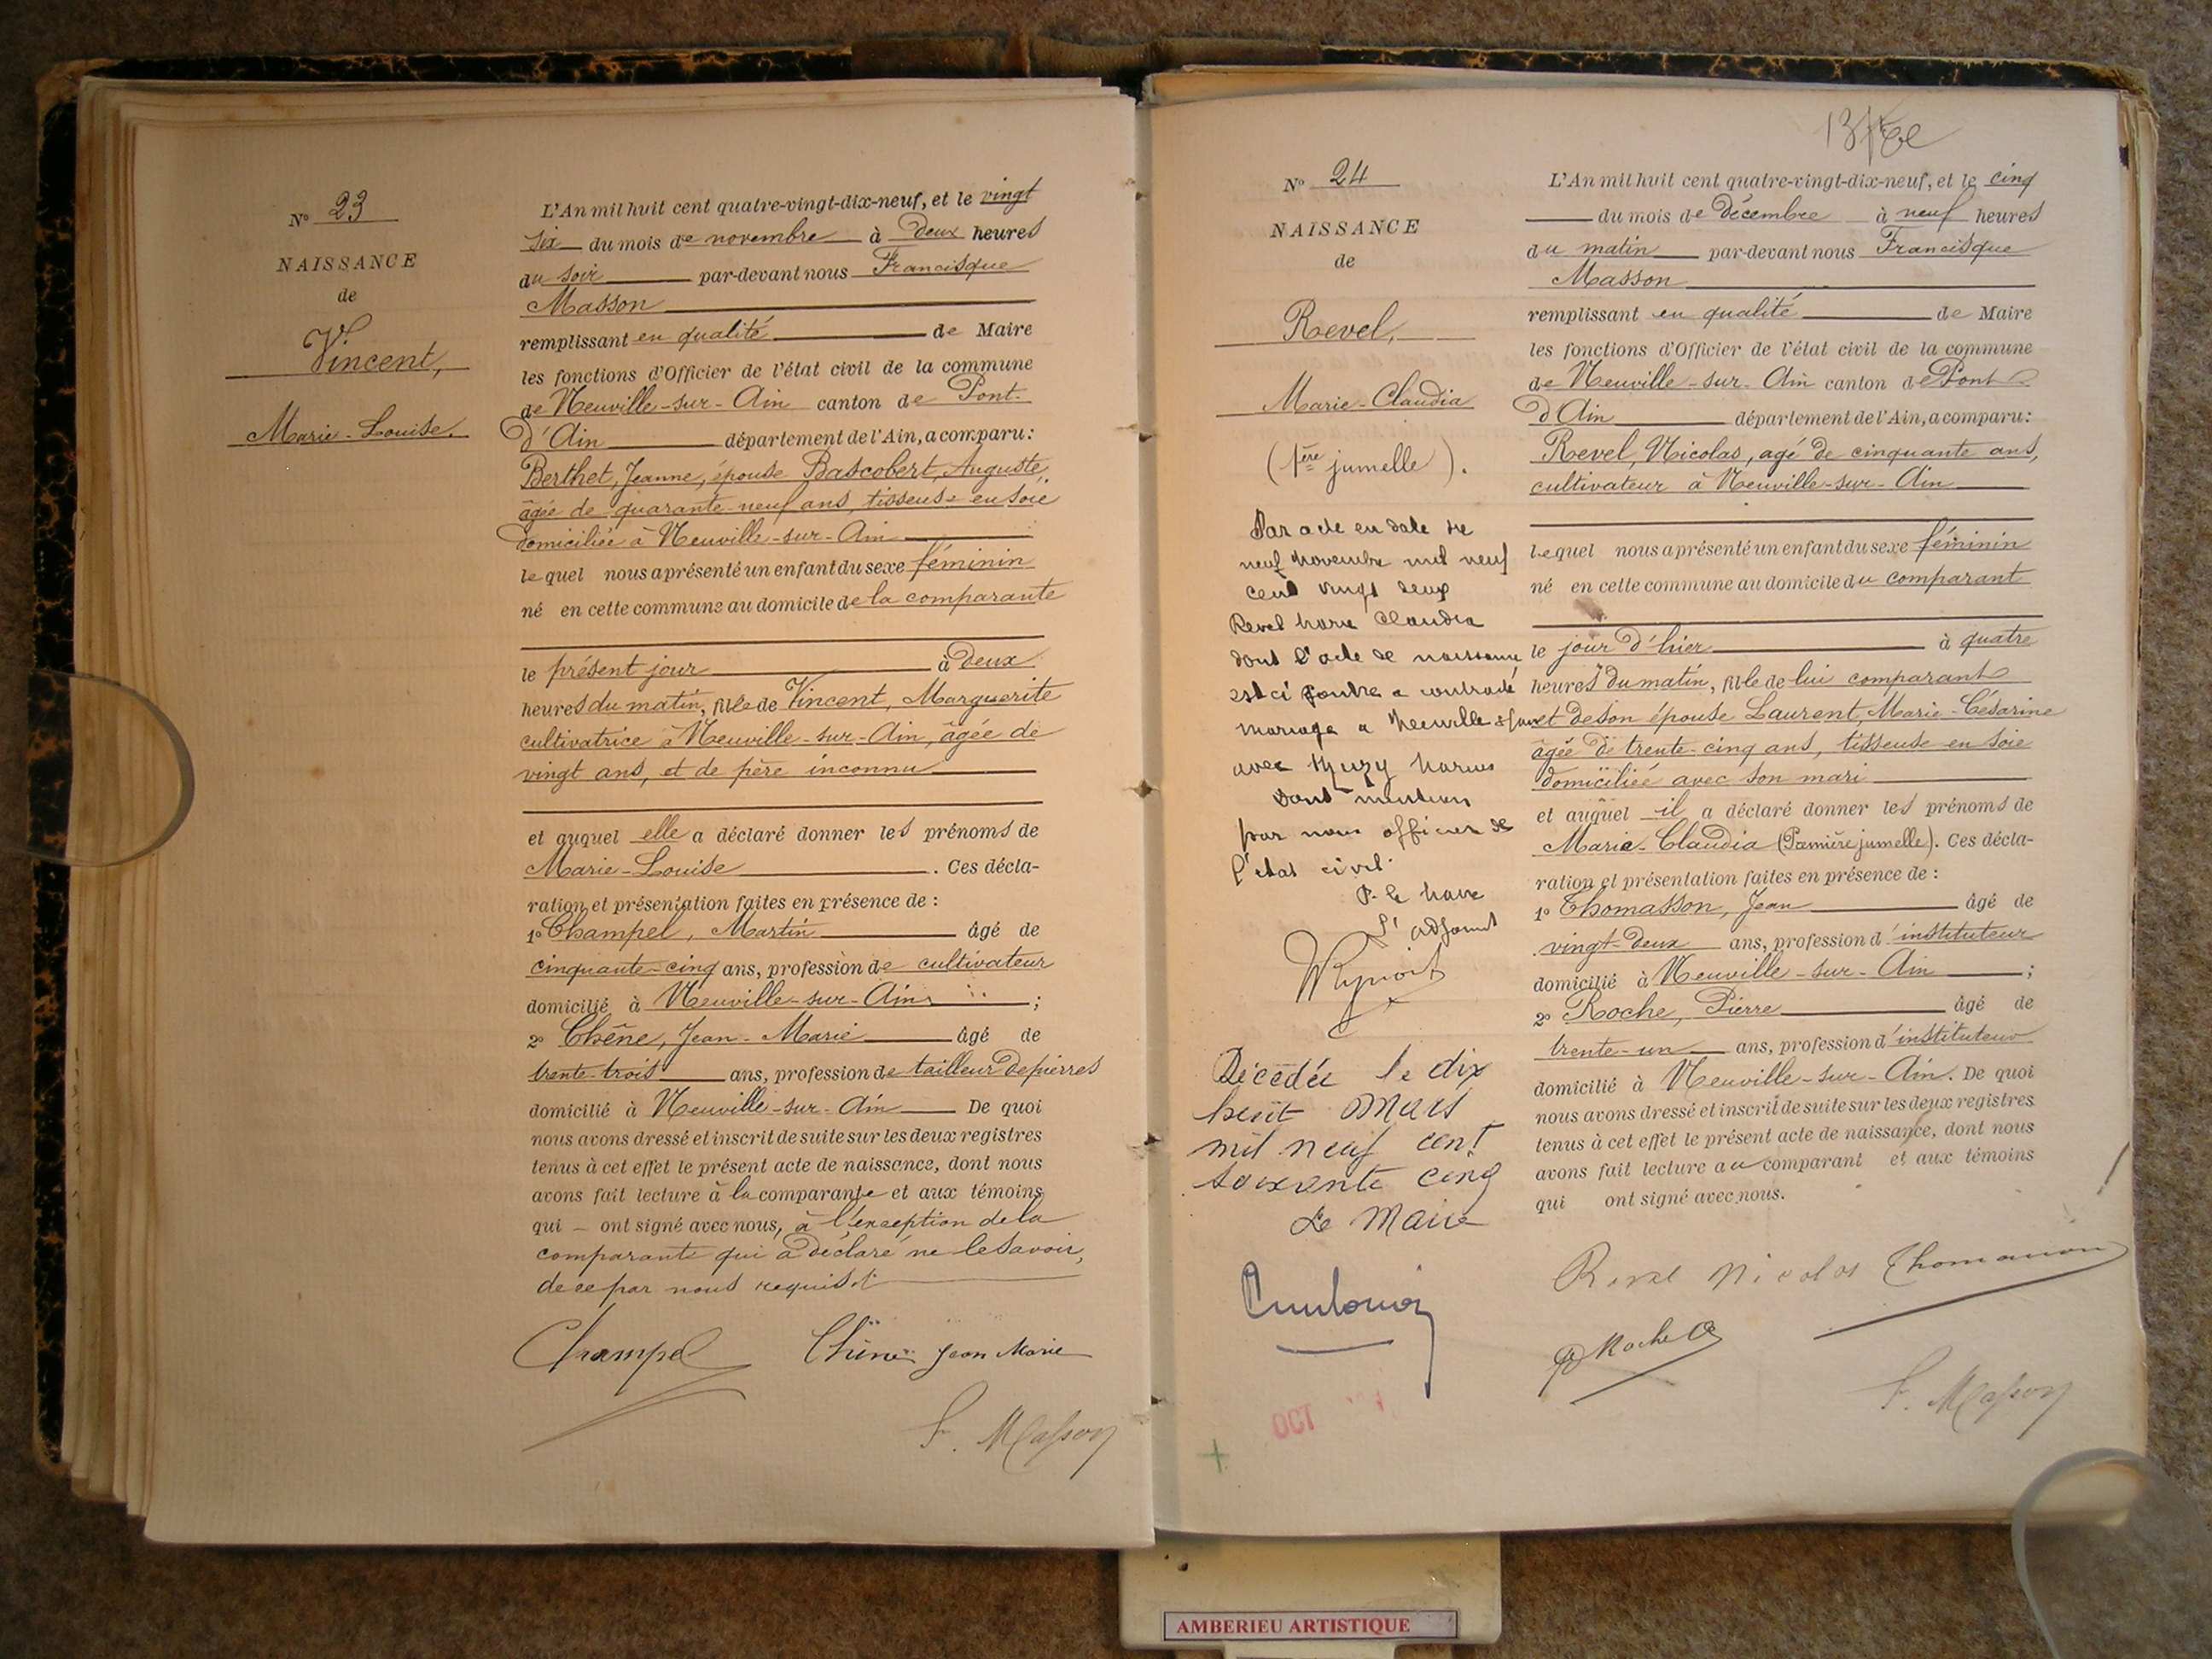 N° 23
NAISSANCE
de
Vincent,
Marie-Louise.
L'An mil huit cent quatre-vingt-dix-neuf, et le vingt
six du mois de novembre à Deux heures
du soir par-devant nous Francisque
Masson
remplissant en qualité de Maire
les fonctions d'Officier de l'état civil de la commune
de Neuville-sur-Ain canton de Pont-
d'Ain département de l'Ain, a comparu:
Berthet, Jeanne, épouse Bascobert, Auguste,
âgée de quarante-neuf ans, tisseuse en soie
domiciliée à Neuville-sur-Ain
lequel nous a présenté un enfant du sexe féminin
né en cette commune au domicile de la comparante
le présent jour à Deux
heures du matin, fille de Vincent, Marguerite
cultivatrice à Neuville-sur-Ain, âgée de
vingt ans, et de père inconnu
et auquel elle a déclaré donner les prénoms de
Marie-Louise. Ces décla-
ration et présentation faites en présence de :
1° Champel, Martin âgé de
cinquante-cinq ans, profession de cultivateur
domicilié à Neuville-sur-Ain ;
2° Chêne, Jean-Marie âgé de
trente-trois ans, profession de tailleur de pierres
domicilié à Neuville-sur-Ain De quoi
nous avons dressé et inscrit de suite sur les deux registres
tenus à cet effet le présent acte de naissance, dont nous
avons fait lecture à la comparante et aux témoins
qui - ont signé avec nous, à l'exception de la
comparante qui a déclaré ne le savoir,
de ce par nous requise
Champel Chêne Jean Marie
F. Masson
N° 24
NAISSANCE
de
Revel,
Marie-Claudia
(1ère jumelle).
Par acte en date du
neuf novembre mil neuf
cent vingt deux
Revel Marie Claudia
dont l'acte de naissance
est ci contre a contracté
mariage a Neuville s/ain
avec Marius
Dont mention
par nous officier de
l'état civil.
P. le Maire
l'adjoint
Décédée le dix
huit Mars
mil neuf cent
soixante cinq
Le Maire
OCT
L'An mil huit cent quatre-vingt-dix-neuf, et le cinq
du mois de Décembre à neuf heures
du matin par-devant nous Francisque
Masson
remplissant en qualité de Maire
les fonctions d'Officier de l'état civil de la commune
de Neuville-sur-Ain canton de Pont
d'Ain département de l'Ain, a comparu:
Revel, Nicolas, agé de cinquante ans,
cultivateur à Neuville-sur-Ain
lequel nous a présenté un enfant du sexe féminin
né en cette commune au domicile du comparant
le jour d'hier à quatre
heures du matin, fille de lui comparant
et de son épouse Laurent, Marie-Césarine
agée de trente-cinq ans, tisseuse en soie
domiciliée avec son mari
et auquel il a déclaré donner les prénoms de
Marie-Claudia (Première jumelle). Ces décla-
ration et présentation faites en présence de :
1° Thomasson, Jean âgé de
vingt-deux ans, profession d'instituteur
domicilié à Neuville-sur-Ain ;
2° Roche, Pierre âgé de
trente-un ans, profession d'instituteur
domicilié à Neuville-sur-Ain. De quoi
nous avons dressé et inscrit de suite sur les deux registres
tenus à cet effet le présent acte de naissance, dont nous
avons fait lecture au comparant et aux témoins
qui ont signé avec nous.
Revel Nicolas Thomasson
P Roche
F. Masson
AMBERIEU ARTISTIQUE